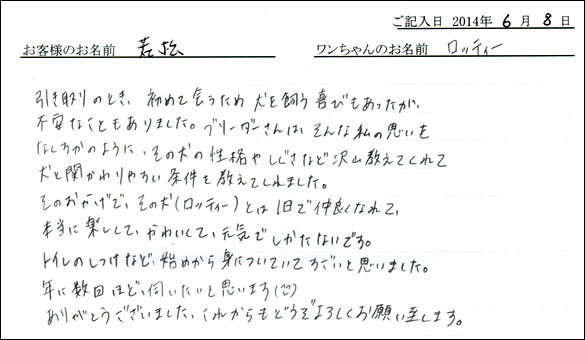 ご記入日 2014年 6月 8日
お客様のお名前 若松 ワンちゃんのお名前 ロッティー
引き取りのとき、初めて会うため犬を飼う喜びもあったが、
不安なこともありました。ブリーダーさんは、そんな私の思いを
なしるかのように、その犬の性格やしぐさなど沢山教えてくれて
犬と関わりやすい条件を教えてくれました。
そのおかげで、その犬(ロッティー)とは1日で仲良くなれて、
本当に楽しくて、かわいくて、元気でしかたないです。
トイレのしつけなど、始めから身についていてすごいと思いました。
年に数回ほど、伺いたいと思います(^^)
ありがとうございました。これからもどうぞよろしくお願い致します。